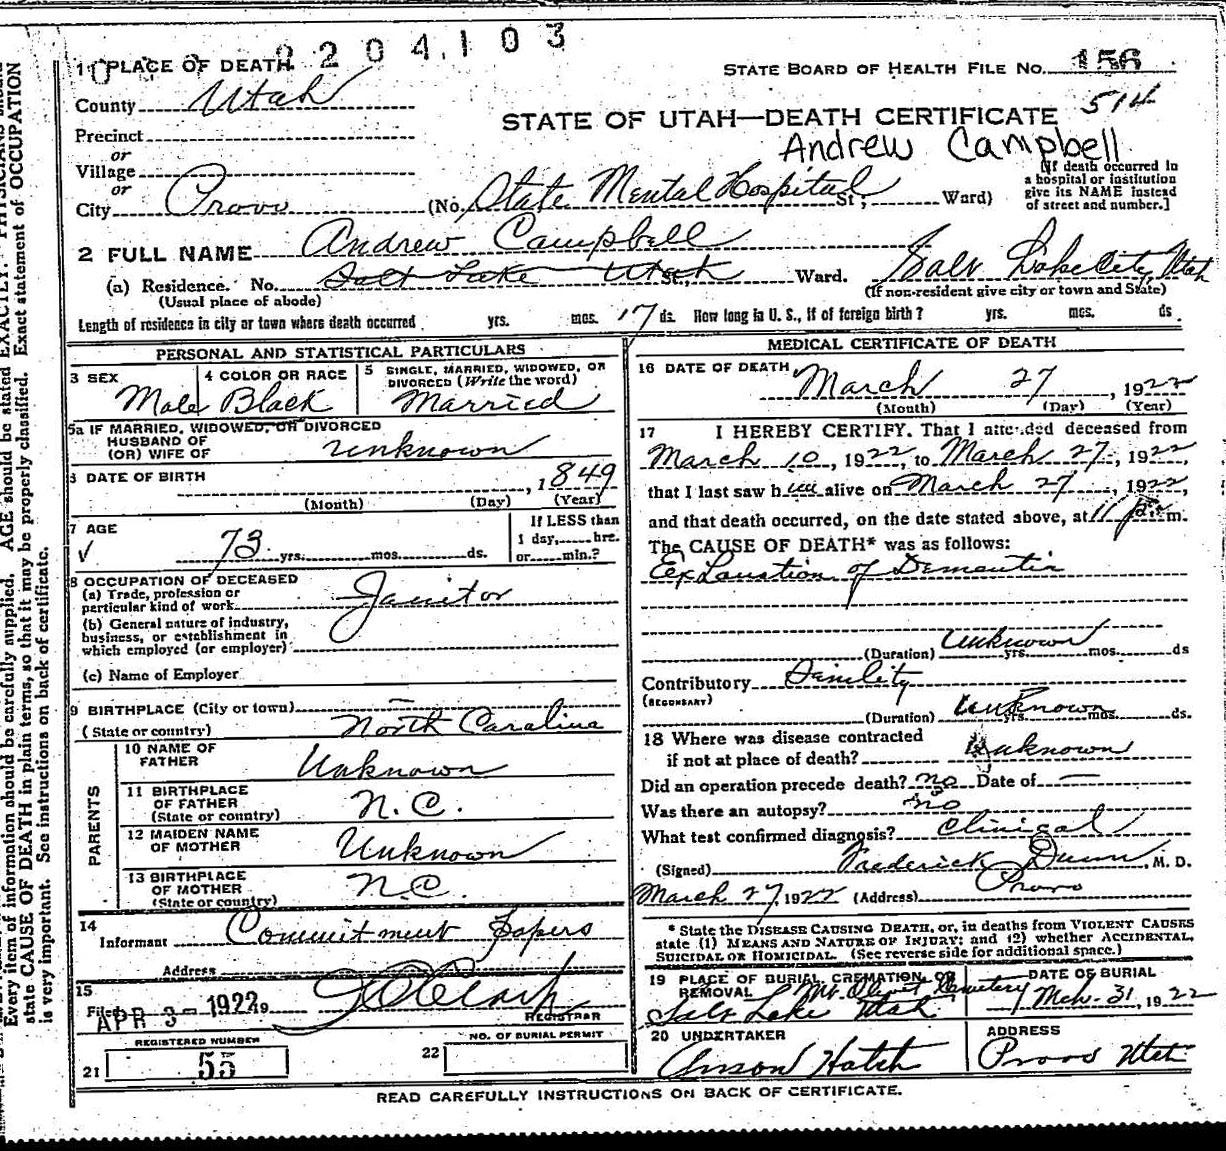 0 2204103
1 PLACE OF DEATH.
STATE BOARD OF HEALTH FILE NO. 156
514
County Utah
STATE OF UTAH—DEATH CERTIFICATE
Andrew Campbell
Precinct
or
Village
or
City Provo (No. State Mental Hospital St; Ward)
[If death occurred in
a hospital or institution
give its NAME instead
of street and number.]
2 FULL NAME Andrew Campbell
(a) Residence. No. Salt Lake Utah St., Ward. Salt Lake City, Utah
(Usual place of abode)
(If non-resident give city or town and State)
Length of residence in city or town where death occurred yrs. mos. 17 ds. How long in U. S., if of foreign birth? yrs. mos. ds.
PERSONAL AND STATISTICAL PARTICULARS
3 SEX Male
4 COLOR OR RACE Black
5 SINGLE, MARRIED, WIDOWED, OR
DIVORCED (Write the word)
Married
5a IF MARRIED, WIDOWED, OR DIVORCED
HUSBAND OF
(OR) WIFE OF Unknown
6 DATE OF BIRTH , 1849
(Month) (Day) (Year)
7 AGE
✓ 73 yrs. mos. ds.
If LESS than
1 day, hrs.
or min.?
8 OCCUPATION OF DECEASED
(a) Trade, profession or
particular kind of work Janitor
(b) General nature of industry,
business, or establishment in
which employed (or employer)
(c) Name of Employer
9 BIRTHPLACE (City or town) —
(State or country) North Carolina
PARENTS
10 NAME OF
FATHER Unknown
11 BIRTHPLACE
OF FATHER
(State or country) N.C.
12 MAIDEN NAME
OF MOTHER Unknown
13 BIRTHPLACE
OF MOTHER
(State or country) N.C.
14
Informant Commitment Papers
Address
15
Filed APR 3 - 1922 19
REGISTRAR
REGISTERED NUMBER
21 55
NO. OF BURIAL PERMIT
22
MEDICAL CERTIFICATE OF DEATH
16 DATE OF DEATH March 27, 1922
(Month) (Day) (Year)
17 I HEREBY CERTIFY. That I attended deceased from
March 10, 1922, to March 27, 1922,
that I last saw him alive on March 27, 1922,
and that death occurred, on the date stated above, at 11 m.
The CAUSE OF DEATH* was as follows:
Exhaustion of Dementia
Unknown
(Duration) yrs. mos. ds
Contributory Senility
(SECONDARY)
(Duration) Unknown yrs. mos. ds.
18 Where was disease contracted
if not at place of death? Unknown
Did an operation precede death? no Date of —
Was there an autopsy? no
What test confirmed diagnosis? Clinical
(Signed) Frederick Dunn M. D.
March 27, 1922 (Address) Provo
* State the DISEASE CAUSING DEATH, or, in deaths from VIOLENT CAUSES
state (1) MEANS AND NATURE OF INJURY; and (2) whether ACCIDENTAL,
SUICIDAL OR HOMICIDAL. (See reverse side for additional space.)
19 PLACE OF BURIAL, CREMATION, OR
REMOVAL Mt. Olivet Cemetery
Salt Lake Utah
DATE OF BURIAL
Mch. 31, 1922
20 UNDERTAKER
Anson Hatch
ADDRESS
Provo Utah
READ CAREFULLY INSTRUCTIONS ON BACK OF CERTIFICATE.
Every item of information should be carefully supplied. AGE should be stated EXACTLY. PHYSICIANS should
state CAUSE OF DEATH in plain terms, so that it may be properly classified. Exact statement of OCCUPATION
is very important. See instructions on back of certificate.